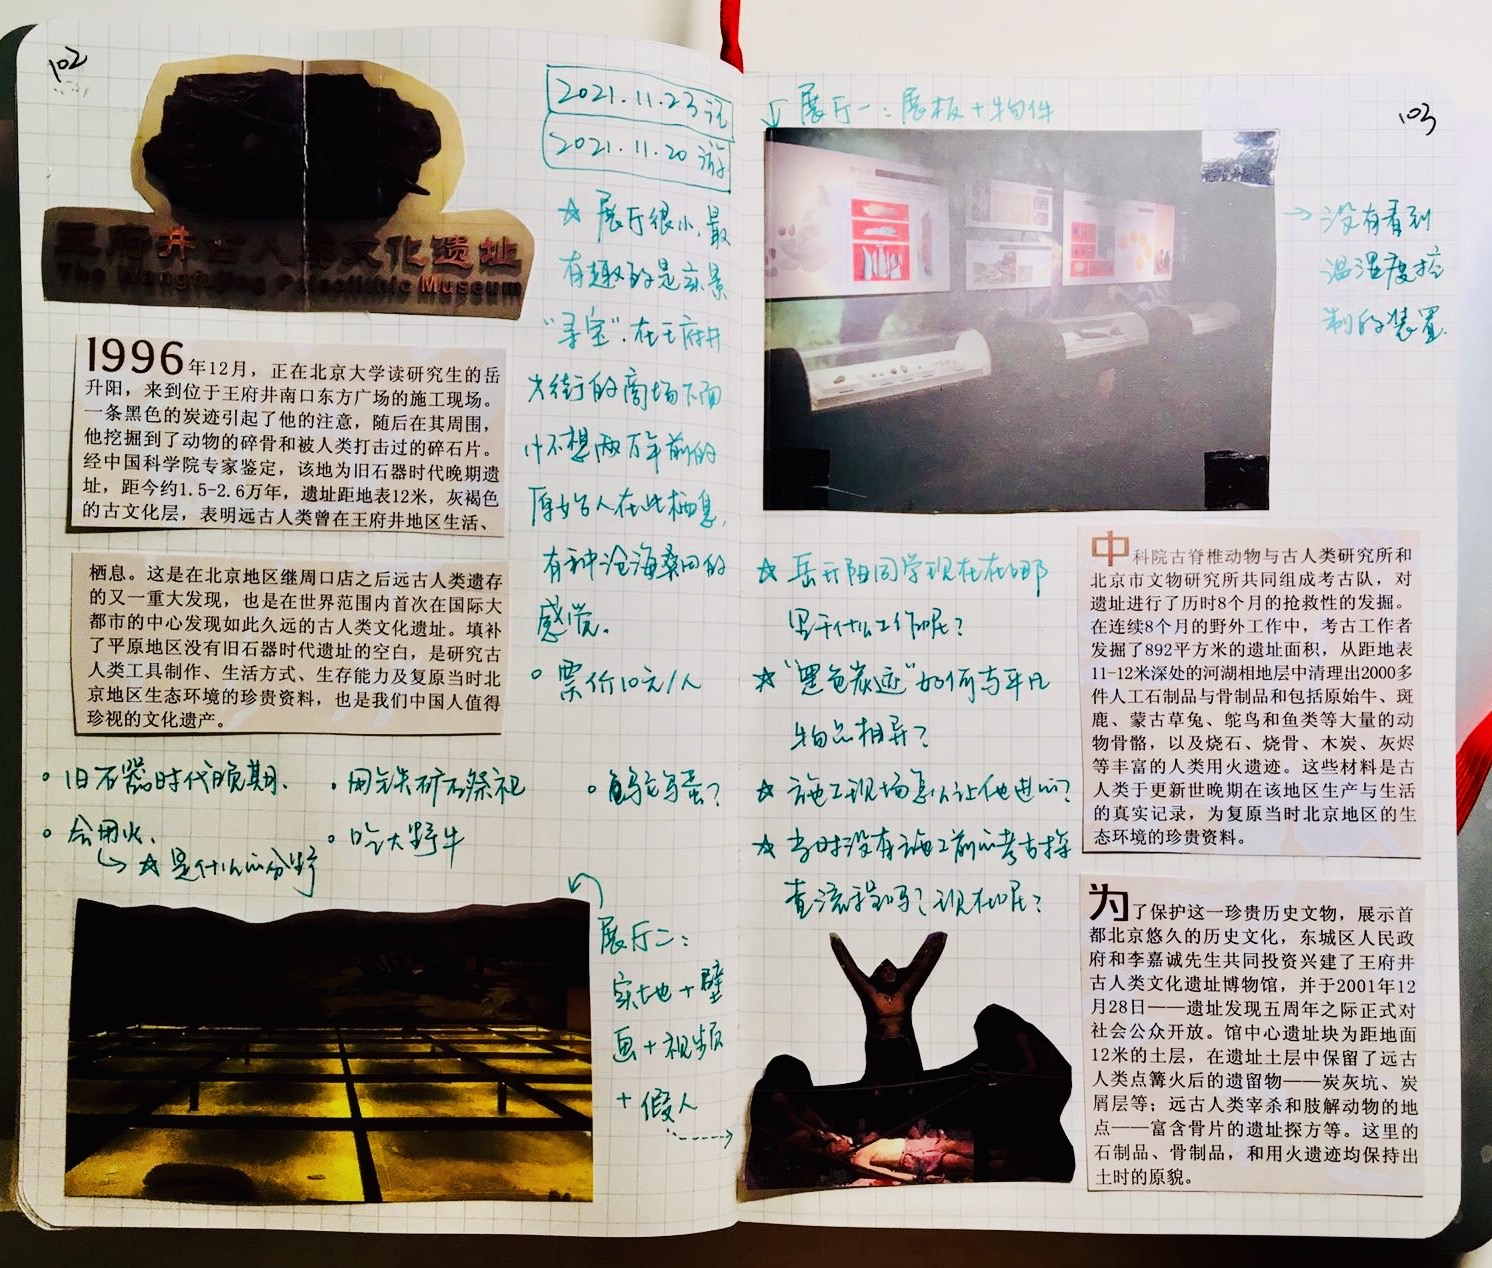 102
王府井古人类文化遗址
The Wangfujing Paleolithic Museum
1996年12月，正在北京大学读研究生的岳
升阳，来到位于王府井南口东方广场的施工现场。
一条黑色的炭迹引起了他的注意，随后在其周围，
他挖掘到了动物的碎骨和被人类打击过的碎石片。
经中国科学院专家鉴定，该地为旧石器时代晚期遗
址，距今约1.5-2.6万年，遗址距地表12米，灰褐色
的古文化层，表明远古人类曾在王府井地区生活、
栖息。这是在北京地区继周口店之后远古人类遗存
的又一重大发现，也是在世界范围内首次在国际大
都市的中心发现如此久远的古人类文化遗址。填补
了平原地区没有旧石器时代遗址的空白，是研究古
人类工具制作、生活方式、生存能力及复原当时北
京地区生态环境的珍贵资料，也是我们中国人值得
珍视的文化遗产。
2021.11.23记
2021.11.20游
☆ 展厅很小，最
有趣的是实景
“寻宝”.在王府井
大街的商场下面
竟不想两万年前的
原始古人在此栖息，
有种沧海桑田的
感觉。
。票价10元/人
。旧石器时代晚期.
。会用火.
☆是什么的分野
·用铁矿石祭祀
·吃大野牛
。鸵鸟蛋？
展厅二：
实地+壁
画+视频
+假人
103
展厅一：展板+物件
→没有看到
温湿度控
制的装置.
☆ 岳升阳同学现在在哪
里干什么工作呢？
☆“黑色炭迹”如何与平凡
物品相异？
☆ 施工现场怎么让他进的？
☆ 当时没有施工前的考古探
查流程吗？现在呢？
中科院古脊椎动物与古人类研究所和
北京市文物研究所共同组成考古队，对
遗址进行了历时8个月的抢救性的发掘。
在连续8个月的野外工作中，考古工作者
发掘了892平方米的遗址面积，从距地表
11-12米深处的河湖相地层中清理出2000多
件人工石制品与骨制品和包括原始牛、斑
鹿、蒙古草兔、鸵鸟和鱼类等大量的动
物骨骼，以及烧石、烧骨、木炭、灰烬
等丰富的人类用火遗迹。这些材料是古
人类于更新世晚期在该地区生产与生活
的真实记录，为复原当时北京地区的生
态环境的珍贵资料。
为了保护这一珍贵历史文物，展示首
都北京悠久的历史文化，东城区人民政
府和李嘉诚先生共同投资兴建了王府井
古人类文化遗址博物馆，并于2001年12
月28日——遗址发现五周年之际正式对
社会公众开放。馆中心遗址块为距地面
12米的土层，在遗址土层中保留了远古
人类点篝火后的遗留物——炭灰坑、炭
屑层等；远古人类宰杀和肢解动物的地
点——富含骨片的遗址探方等。这里的
石制品、骨制品，和用火遗迹均保持出
土时的原貌。